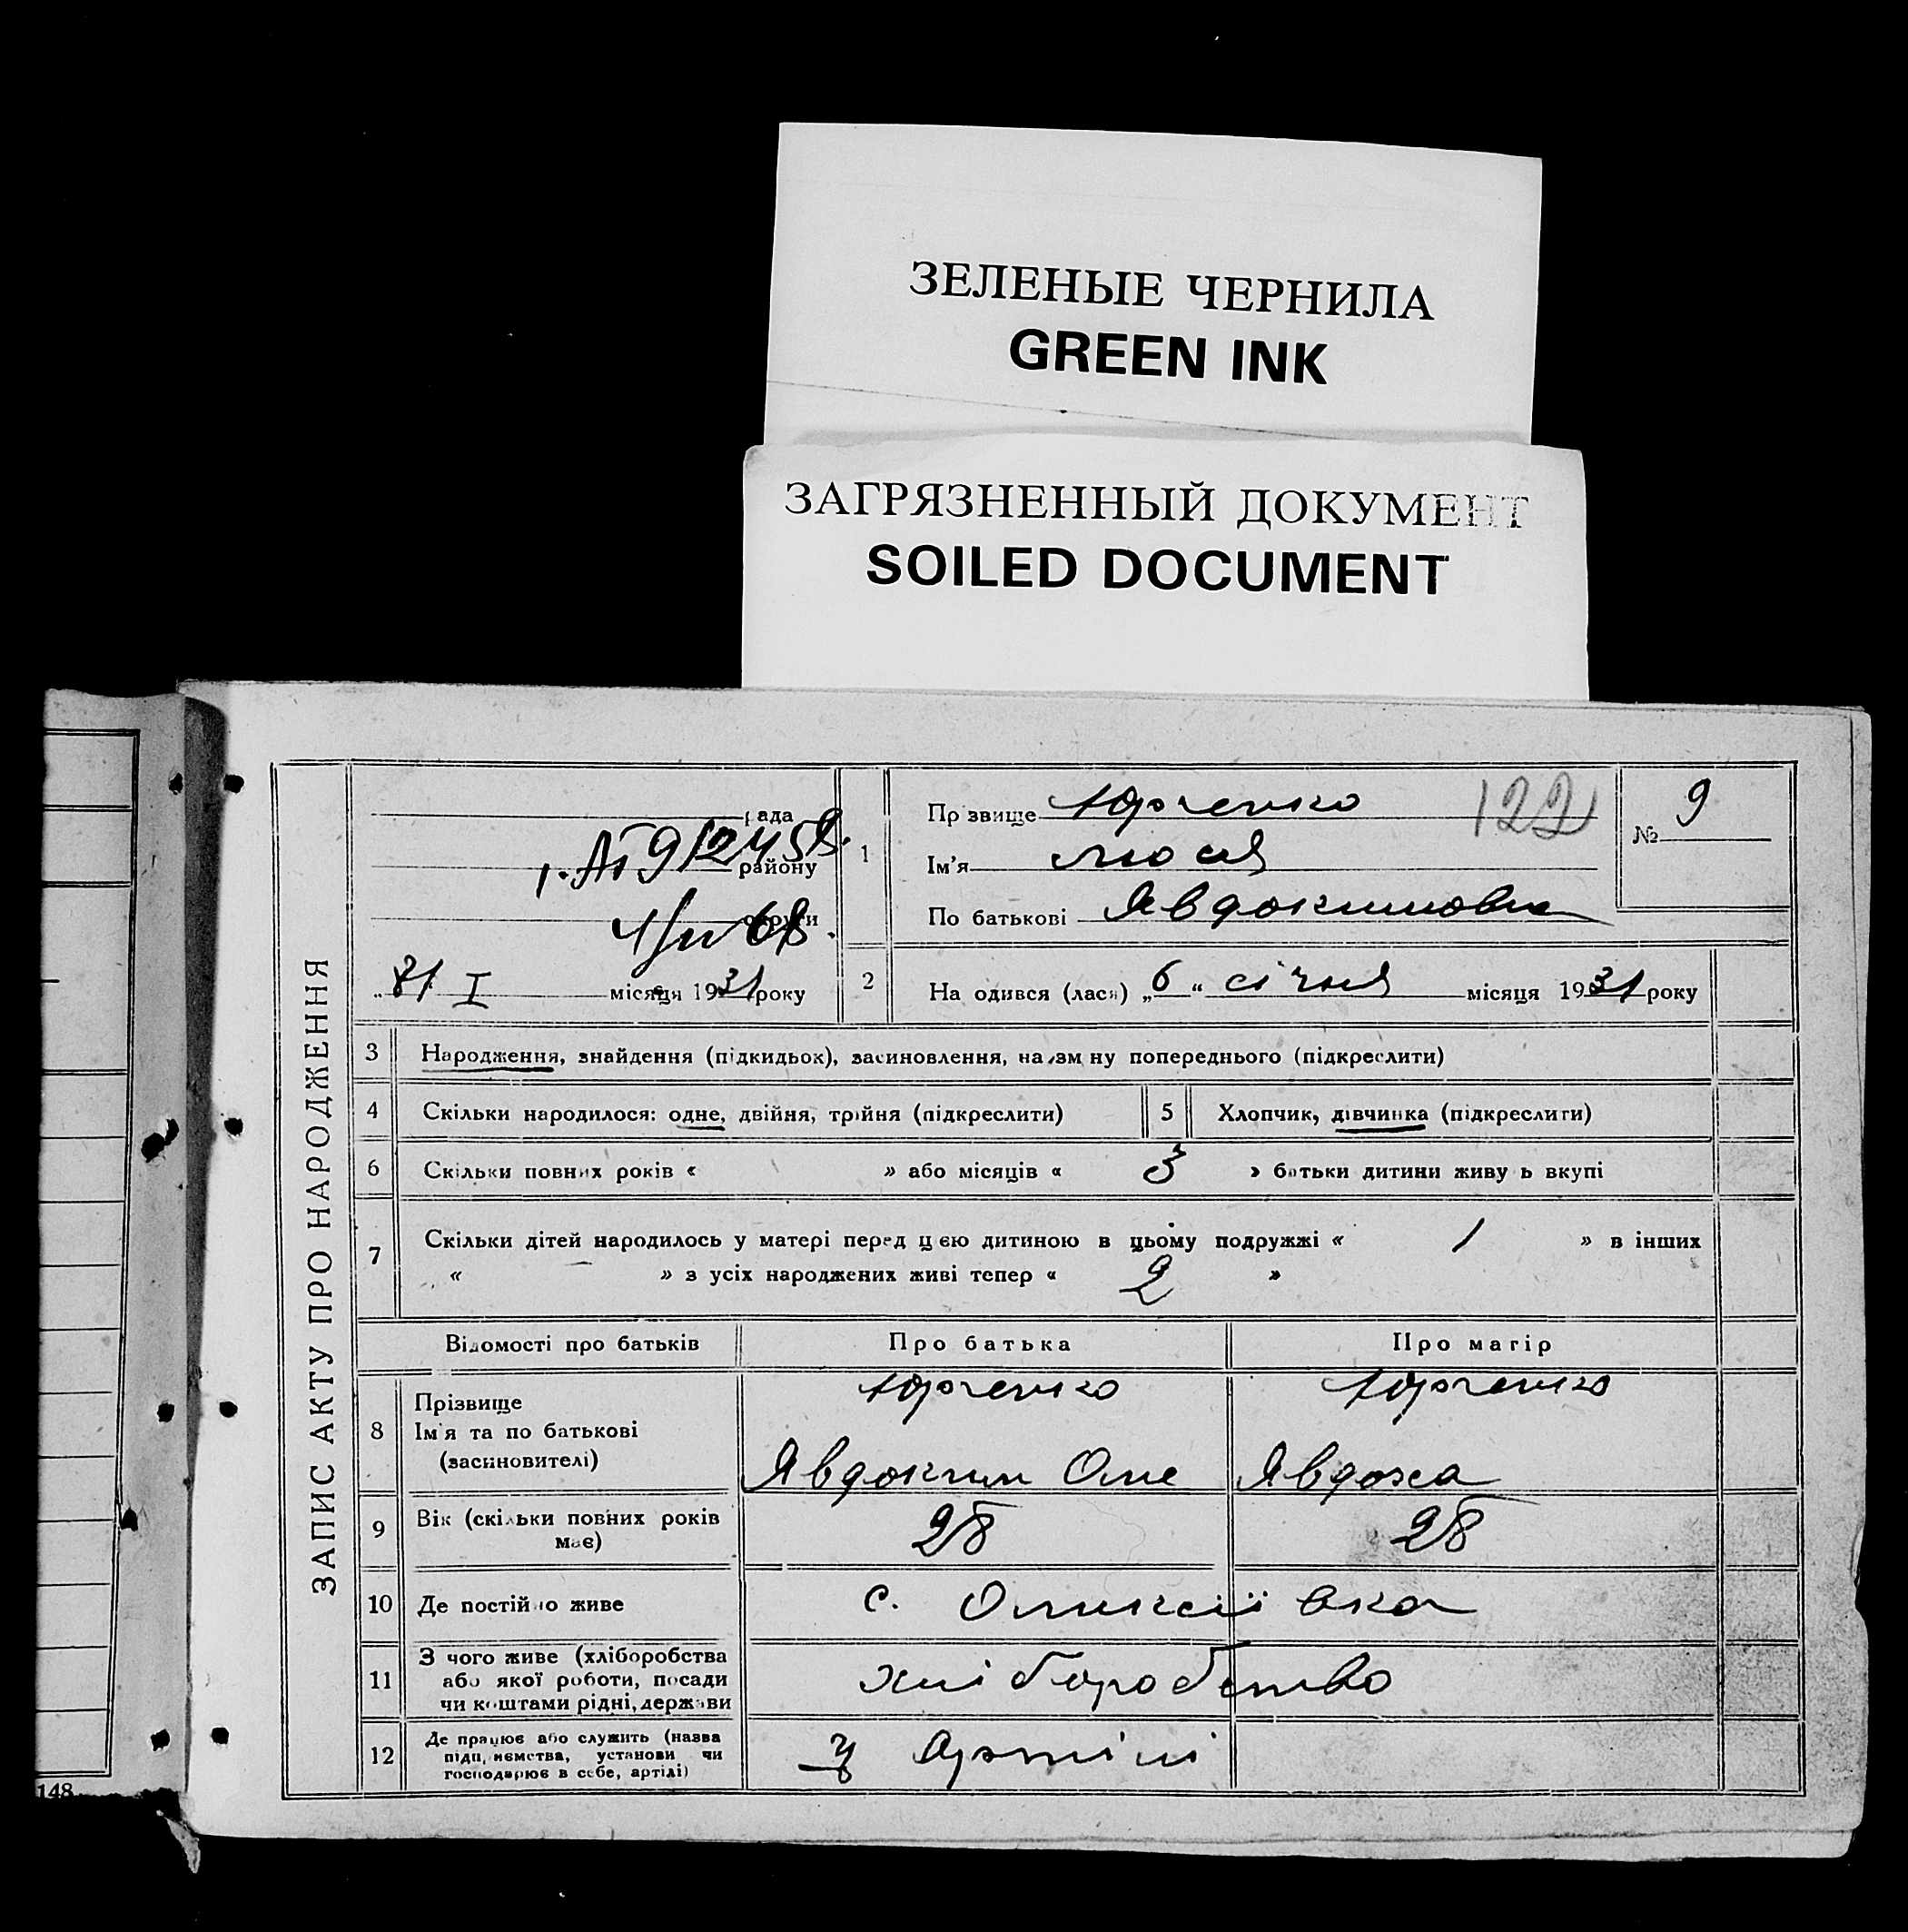 ЗЕЛЕНЫЕ ЧЕРНИЛА
GREEN INK
ЗАГРЯЗНЕННЫЙ ДОКУМЕНТ
SOILED DOCUMENT
ЗАПИС АКТУ ПРО НАРОДЖЕННЯ
рада
району
округи
„31“ I місяця 1931 року
1 Прізвище Юрченко 122
Ім'я Люся
По батькові Явдокимовна
№ 9
2 Народився (лася) „6“ січня місяця 1931 року
3 Народження, знайдення (підкидьок), засиновлення, на зміну попереднього (підкреслити)
4 Скільки народилося: одне, двійня, трійня (підкреслити) 5 Хлопчик, дівчинка (підкреслити)
6 Скільки повних років « » або місяців « 3 » батьки дитини живуть вкупі
7 Скільки дітей народилось у матері перед цією дитиною в цьому подружжі « 1 » в інших
« — » з усіх народжених живі тепер « 2 »
Відомості про батьків Про батька Про матір
8 Прізвище Юрченко Юрченко
Ім'я та по батькові
(засиновителі) Явдоким Оме Явдоха
9 Вік (скільки повних років має) 28 28
10 Де постійно живе с. Оликсіївка
11 З чого живе (хліборобства
або якої роботи, посади
чи коштами рідні, держави хліборобство
12 Де працює або служить (назва
підприємства, установи чи
господарює в себе, артілі) У Артілі
148